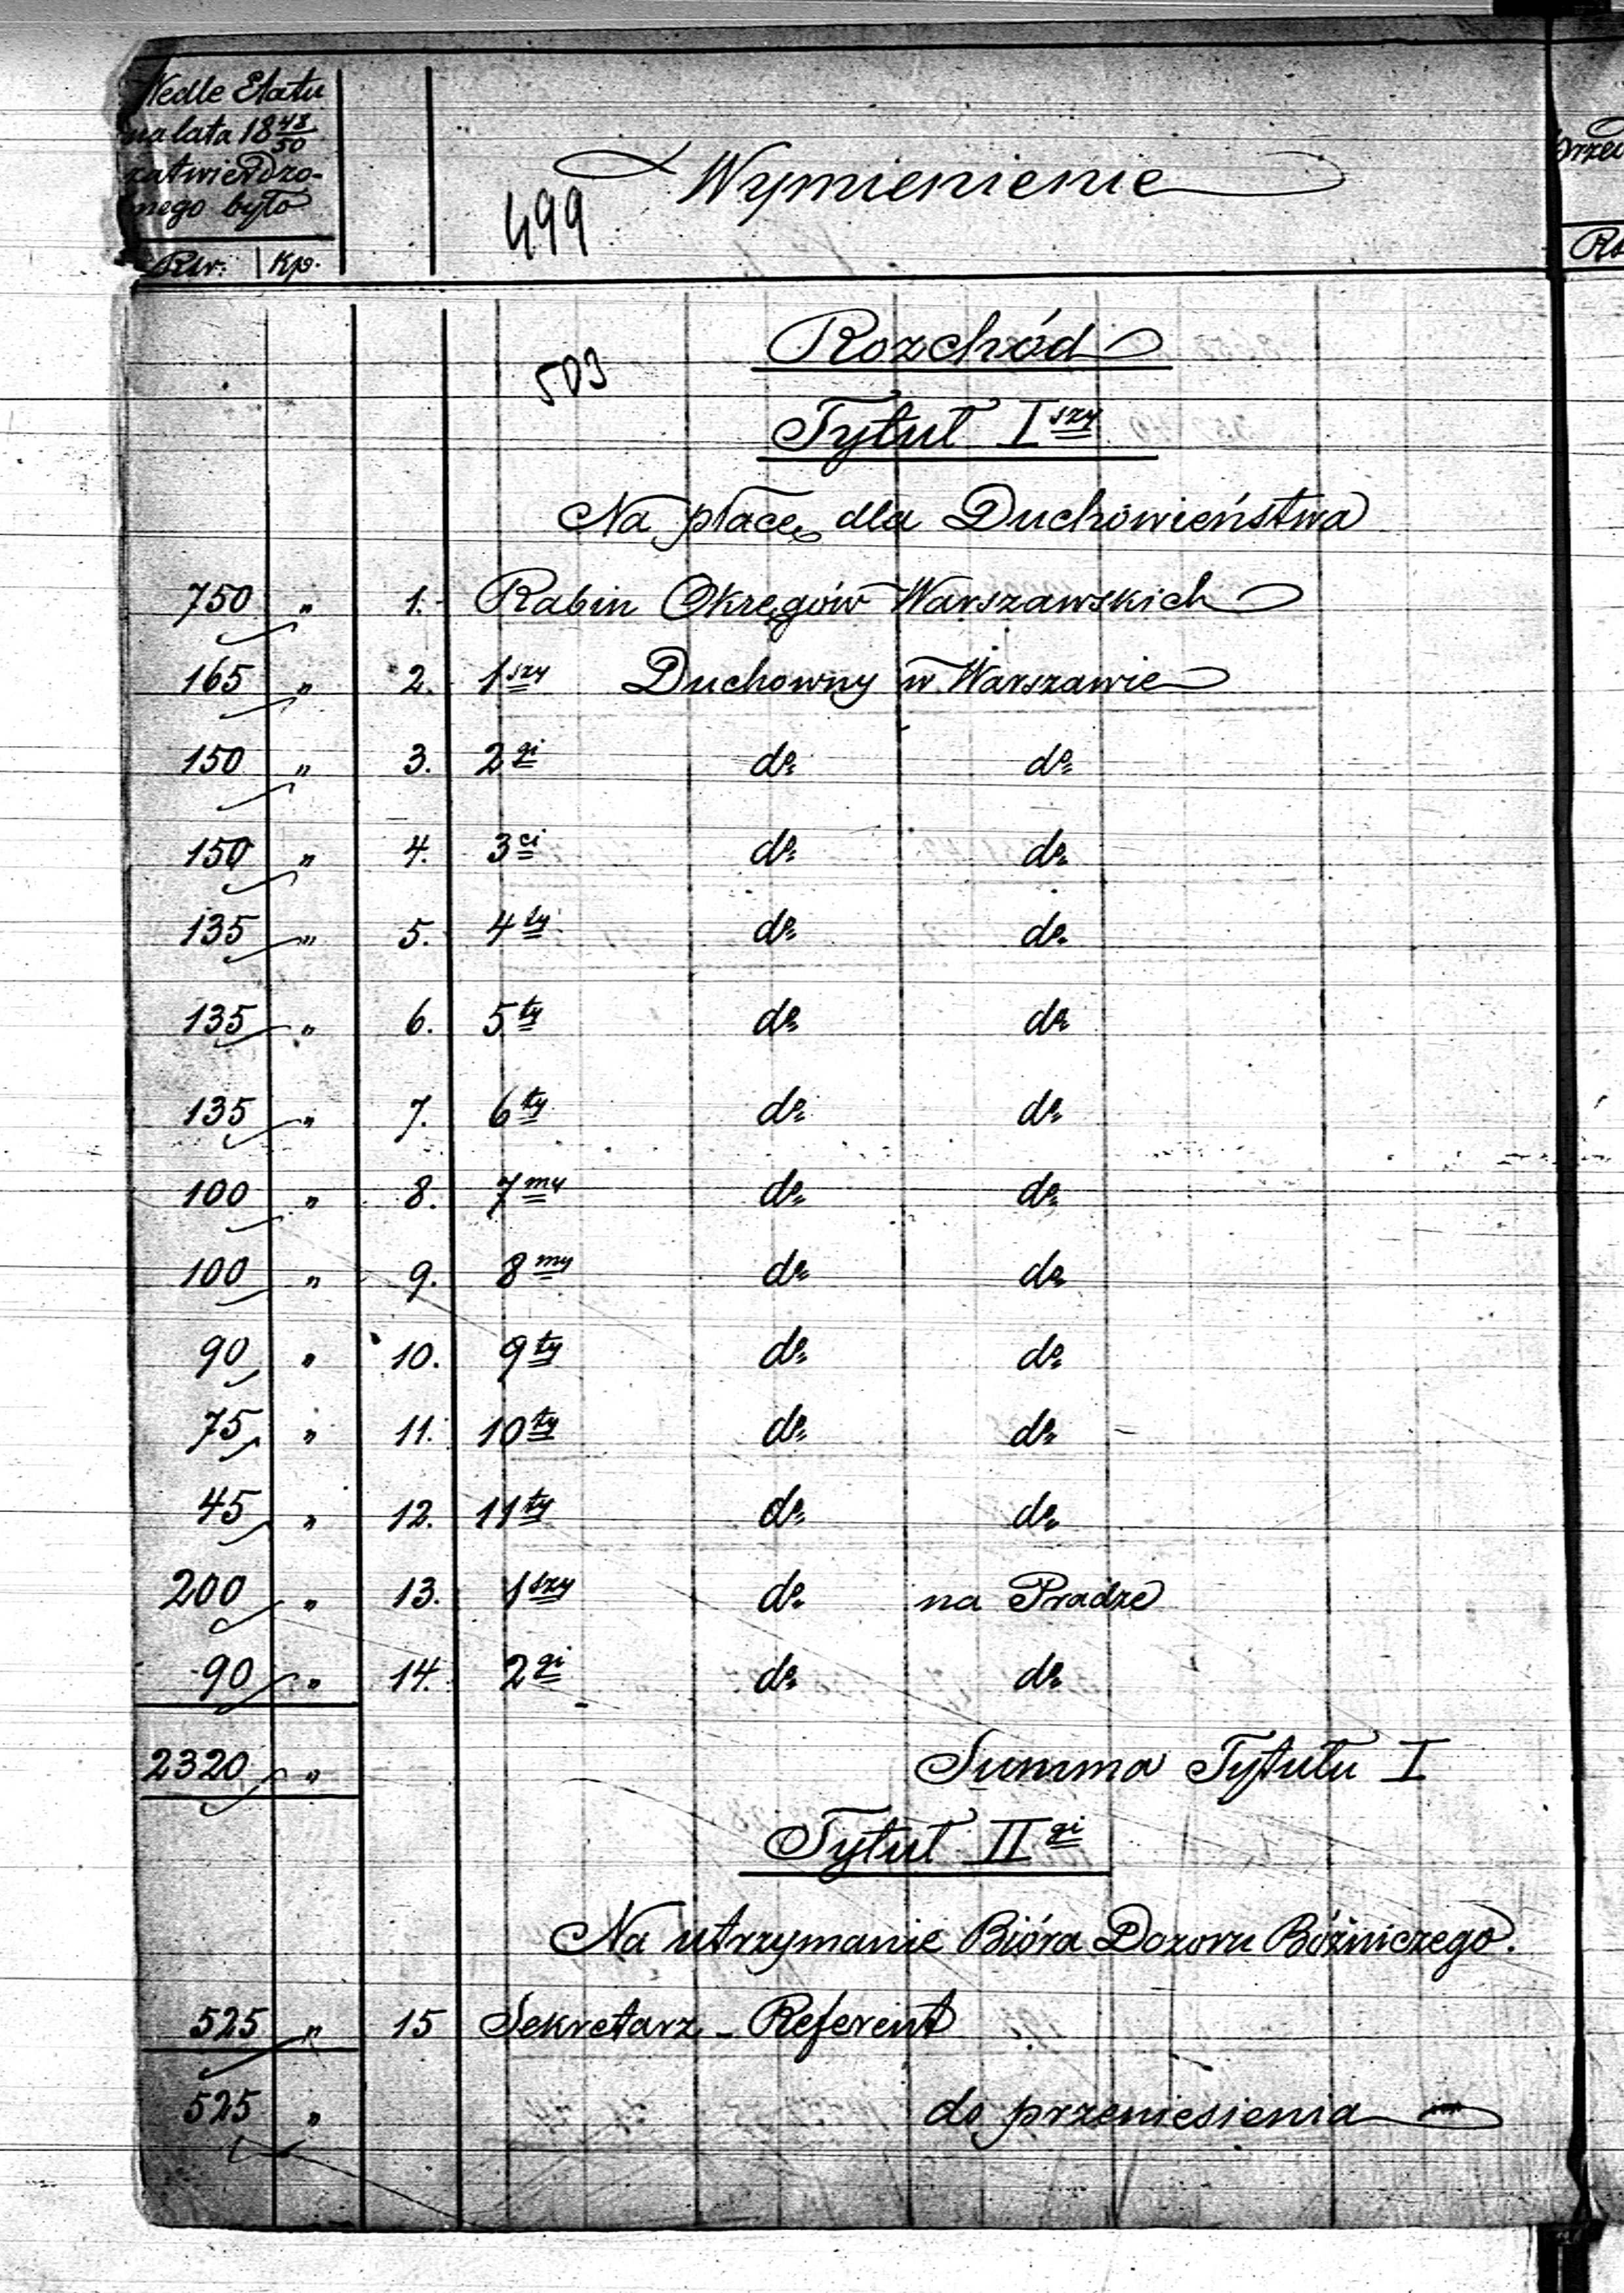 Wedle Etatu
na lata 18 48/50
zatwierdzo-
nego było
Rsr. Kp.
Wymienienie
499
Rozchód
503
Tytuł I szy
Na płace dla Duchowieństwa
750 " 1. Rabin Okręgów Warszawskich
165 " 2. 1szy Duchowny w Warszawie
150 " 3. 2gi do do
150 " 4. 3ci do do
135 " 5. 4ty do do
135 " 6. 5ty do do
135 " 7. 6ty do do
100 " 8. 7my do do
100 " 9. 8my do do
90 " 10. 9ty do do
75 " 11. 10ty do do
45 " 12. 11ty do do
200 " 13. 1szy do na Pradze
90 " 14. 2gi do do
2320 " Summa Tytułu I
Tytuł II gi
Na utrzymanie Bióra Dozoru Bóżniczego.
525 " 15 Sekretarz - Referent
525 " do przeniesienia